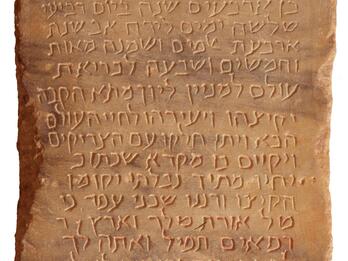 בן ארבעים שנה ביום רביעי
שלשה ימים לירח אב שנת
ארבעת אלפים ושמנה מאות
וחמשים ושבעה לבריאת
עולם למניין מתא הקבה
יקיצהו ויעירהו לחיי העולם
הבא ויתן חיקו עם הצדיקים
ויקויים בו מקרא שכתוב
יחיו מתיך נבלתי יקומון
הקיצו ורננו שכני עפר כי
טל אורת טלך וארץ
רפאים תפיל ואתה לך